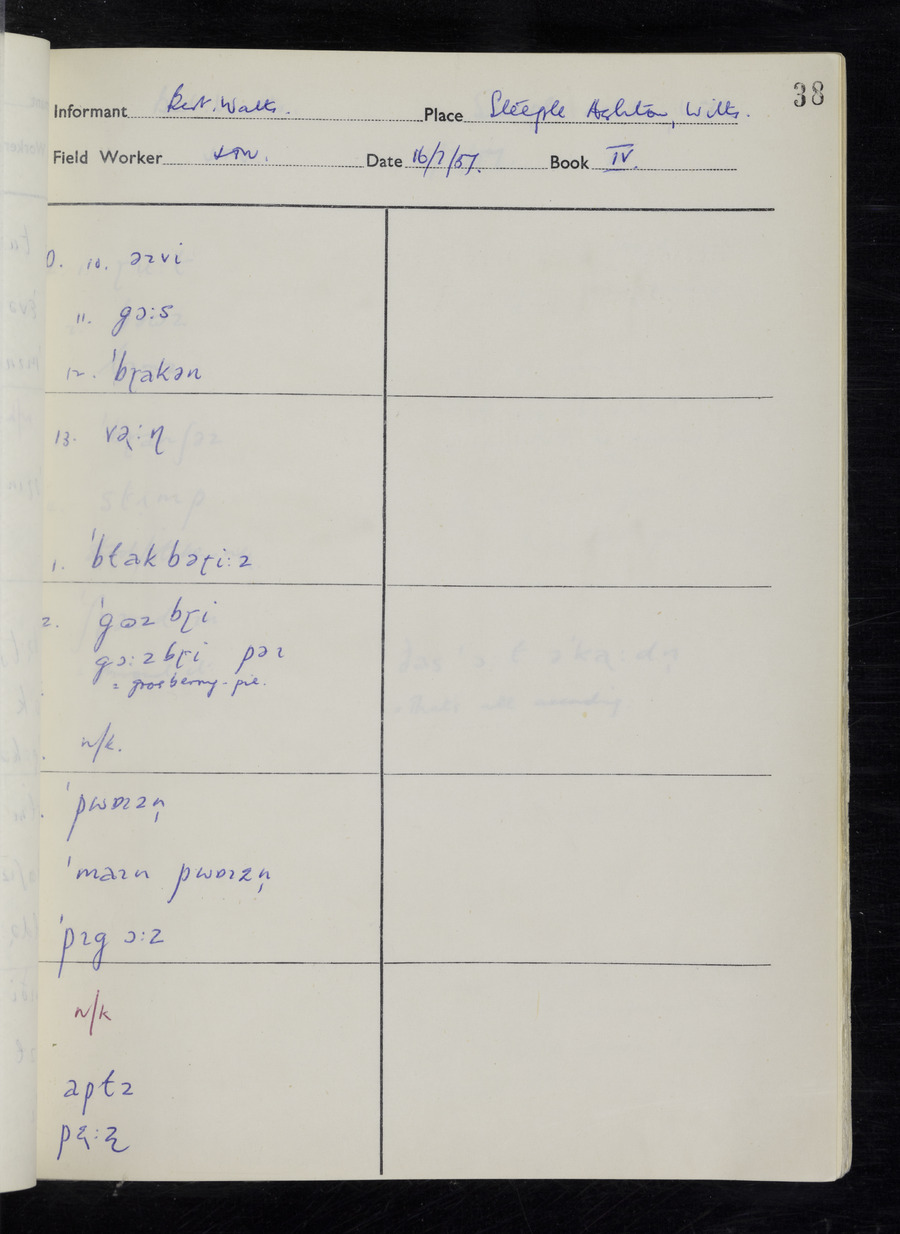 38
Informant Bert. Watts. Place Steeple Ashton, Wilts.
Field Worker Date 16/7/57. Book IV.
0. 10. əɪvi
11. gɔ:s
12. ˈbɽakən
13. və̢:ɳ
1. ˈbɫakbəɽi:z
2. ˈgɷzbɽi
gɔ:zbɽi pəɪ
= gooseberry-pie.
n/k.
ˈpwɒɪzn̩
ˈməɪn pwɒɪzn̩
ˈpɪg ɔ:z
n/k
apɫz